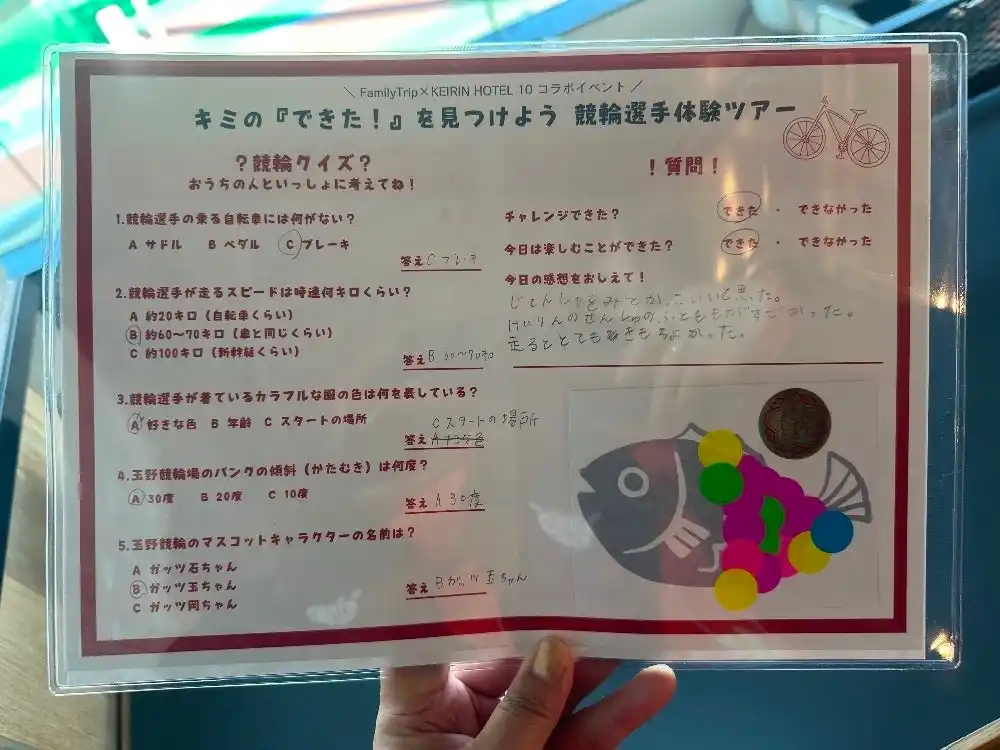 ＼ FamilyTrip×KEIRIN HOTEL 10 コラボイベント ／
キミの『できた！』を見つけよう 競輪選手体験ツアー
？競輪クイズ？
おうちの人といっしょに考えてね！
1.競輪選手の乗る自転車には何がない？
A サドル B ペダル C ブレーキ
答え C ブレーキ
2.競輪選手が走るスピードは時速何キロくらい？
A 約20キロ（自転車くらい）
B 約60〜70キロ（車と同じくらい）
C 約100キロ（新幹線くらい）
答え B 60〜70キロ
3.競輪選手が着ているカラフルな服の色は何を表している？
A 好きな色 B 年齢 C スタートの場所
C スタートの場所
答え A 好きな色
4.玉野競輪場のバンクの傾斜（かたむき）は何度？
A 30度 B 20度 C 10度
答え A 30度
5.玉野競輪のマスコットキャラクターの名前は？
A ガッツ石ちゃん
B ガッツ玉ちゃん
C ガッツ岡ちゃん
答え Bガッツ玉ちゃん
！質問！
チャレンジできた？ できた ・ できなかった
今日は楽しむことができた？ できた ・ できなかった
今日の感想をおしえて！
じてんしゃをみてかっこいいと思った。
けいりんのせんしゅの、ふとももがすごかった。
走るととてもきもちよかった。